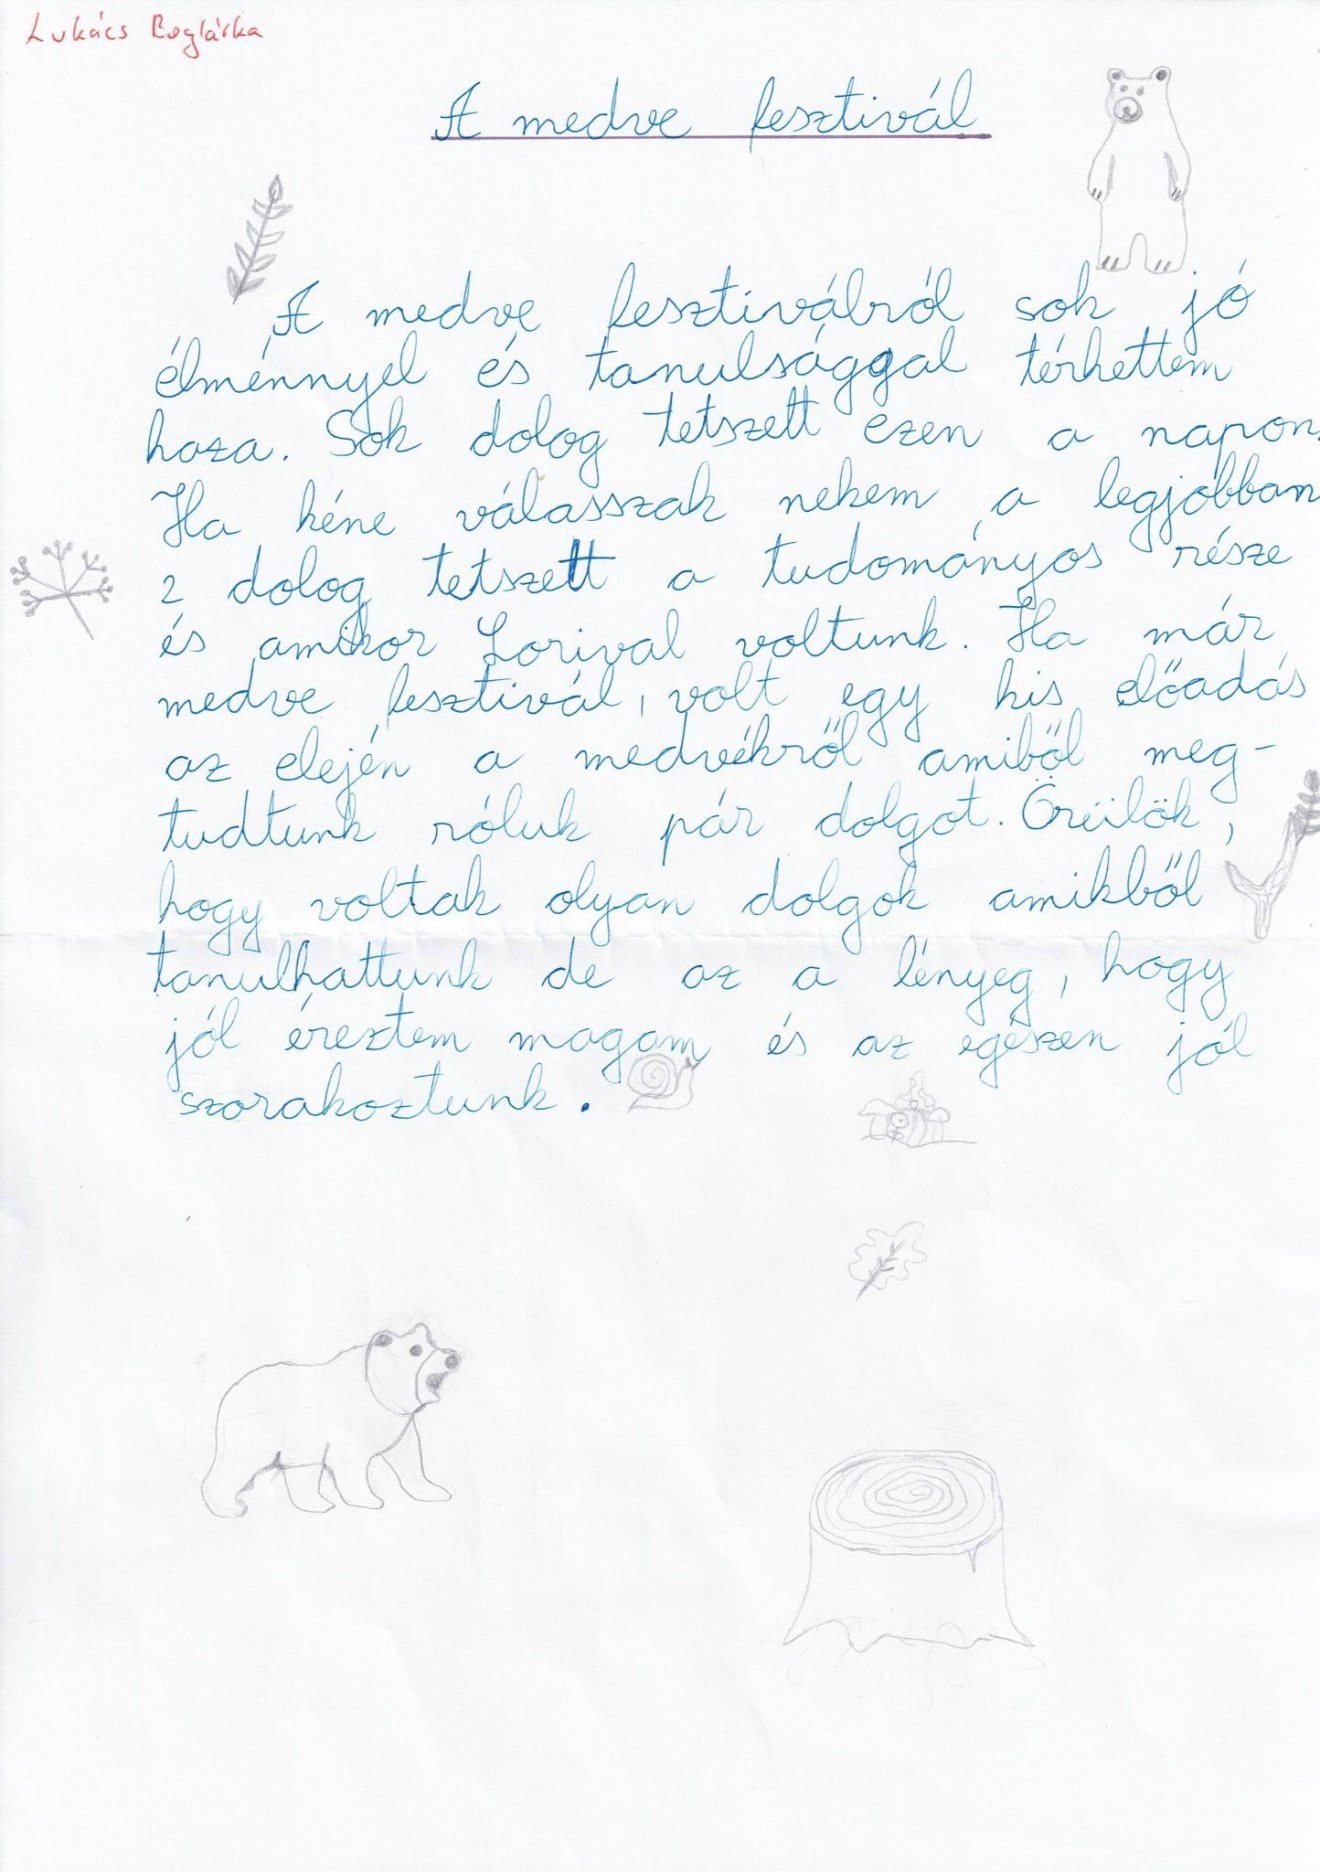 Lukács Boglárka
A medve fesztivál
A medve fesztiválról sok jó
élménnyel és tanulsággal térhettem
haza. Sok dolog tetszett ezen a napon.
Ha kéne válasszak nekem a legjobban
2 dolog tetszett a tudományos része
és amikor Lorival voltunk. Ha már
medve fesztivál, volt egy kis előadás
az elején a medvékről amiből meg-
tudtunk róluk pár dolgot. Örülök,
hogy voltak olyan dolgok amikből
tanulhattunk de az a lényeg, hogy
jól éreztem magam és az egészen jól
szorakoztunk.